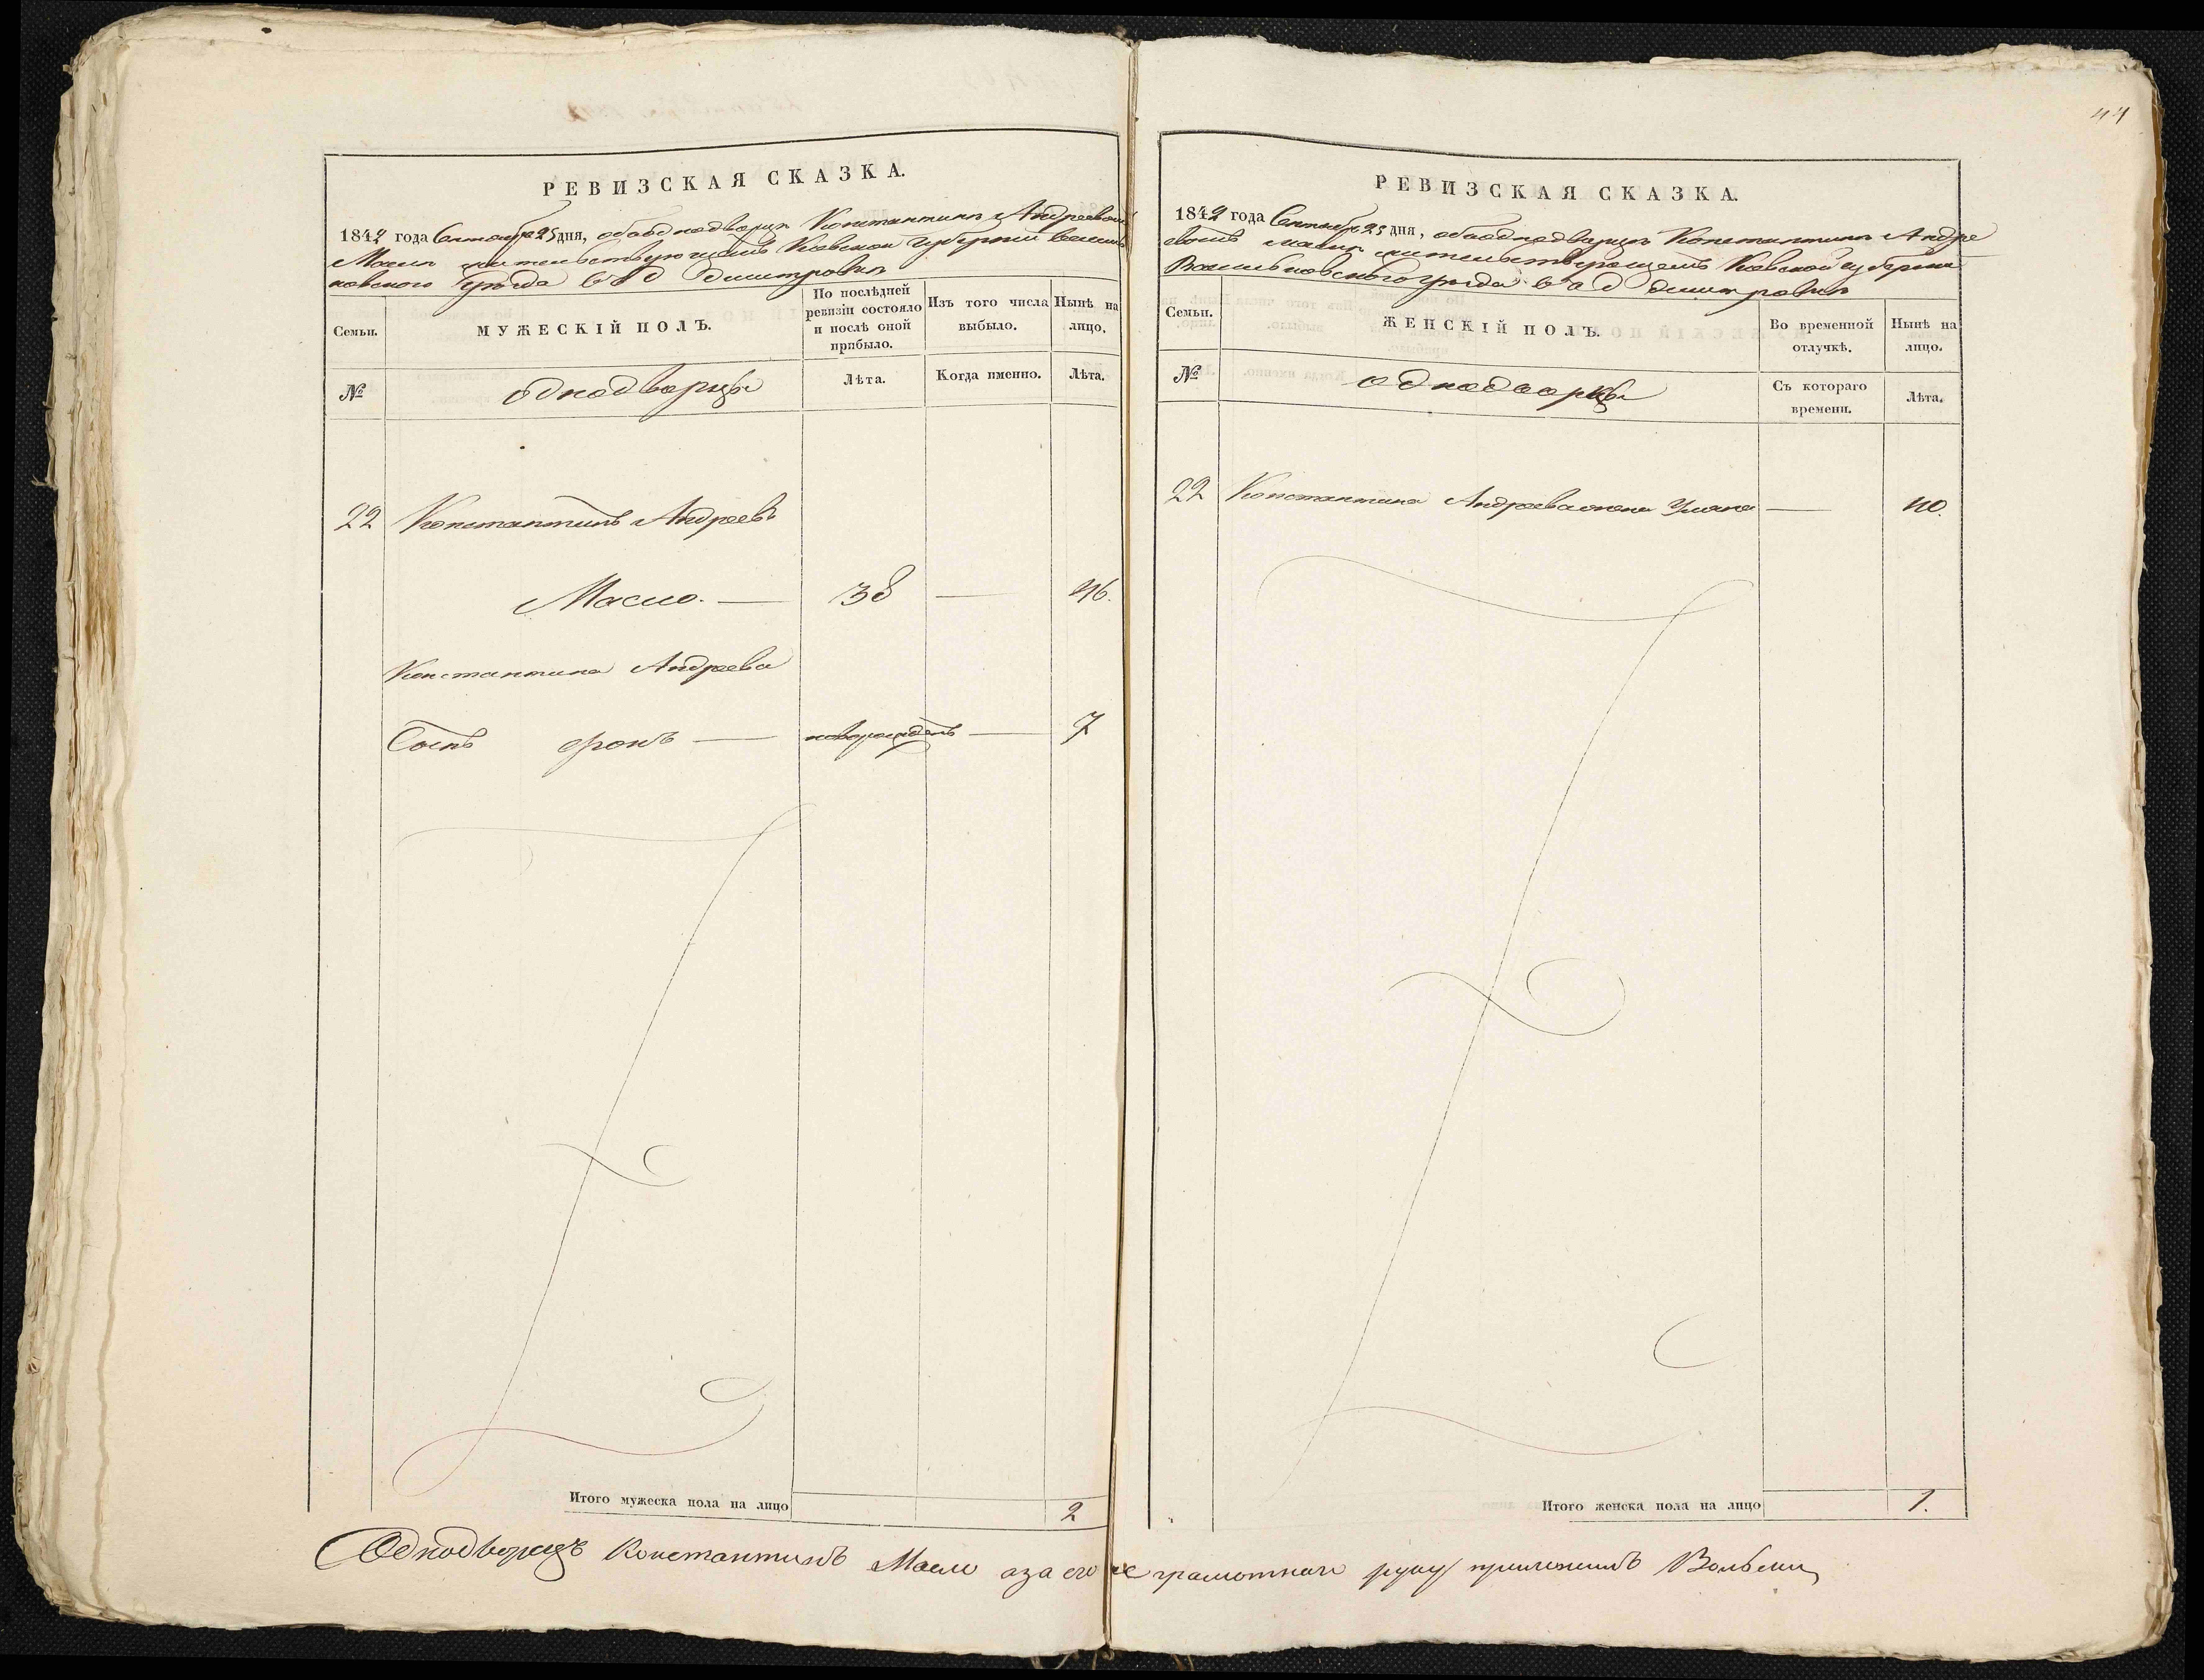 44
РЕВИЗСКАЯ СКАЗКА.
1842 года Сентября 25 дня, об однодворце Константине Андреевом
Масле жительствующимъ Кіевской Губерніи Василь
ковского Уезда в д Дмитровке
Семьи.
МУЖЕСКІЙ ПОЛЪ.
По послѣдней
ревизіи состояло
и послѣ оной
прибыло.
Изъ того числа
выбыло.
Нынѣ на
лицо.
№
однодворцы
Лѣта.
Когда именно.
Лѣта.
22 Константинъ Андреевъ
Масло. — 38 — 46.
Константина Андреева
Сынъ — новорожденъ — 7
Итого мужеска пола на лицо 2
РЕВИЗСКАЯ СКАЗКА.
1842 года Сентября 25 дня, об однодворце Константине Андре
евомъ Масле жительствующемъ Кіевской губерніи
Васильковского уезда в д Дмитровке
Семьи.
ЖЕНСКІЙ ПОЛЪ.
Во временной
отлучкѣ.
Нынѣ на
лицо.
№
однодворцы
Съ котораго
времени.
Лѣта.
22 Константина Андреева жена Уляна — 40.
Итого женска пола на лицо 1.
Однодворецъ Константинъ Масло а за его не грамотнаго руку приложилъ